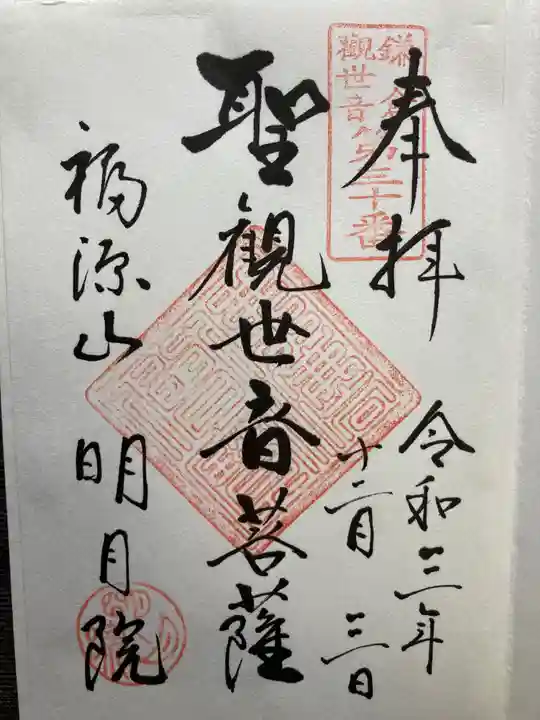 奉拝
鎌倉第三十番
觀世音札所
令和三年
十二月三日
聖觀世音菩薩
福源山明月院